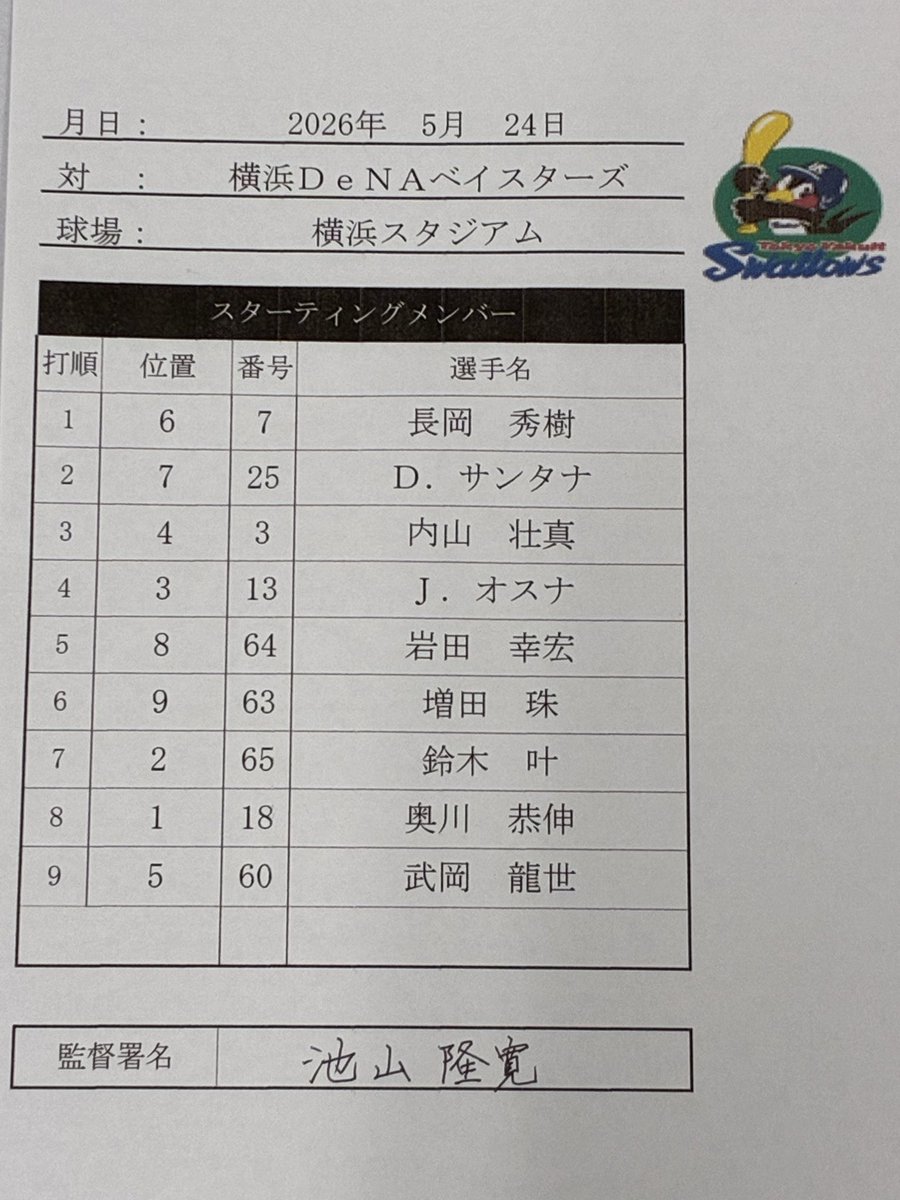 月日： 2026年 5月 24日
対 ： 横浜ＤｅＮＡベイスターズ
球場： 横浜スタジアム
Tokyo Yakult
Swallows
スターティングメンバー
打順 位置 番号 選手名
1 6 7 長岡 秀樹
2 7 25 Ｄ．サンタナ
3 4 3 内山 壮真
4 3 13 Ｊ．オスナ
5 8 64 岩田 幸宏
6 9 63 増田 珠
7 2 65 鈴木 叶
8 1 18 奥川 恭伸
9 5 60 武岡 龍世
監督署名 池山 隆寛